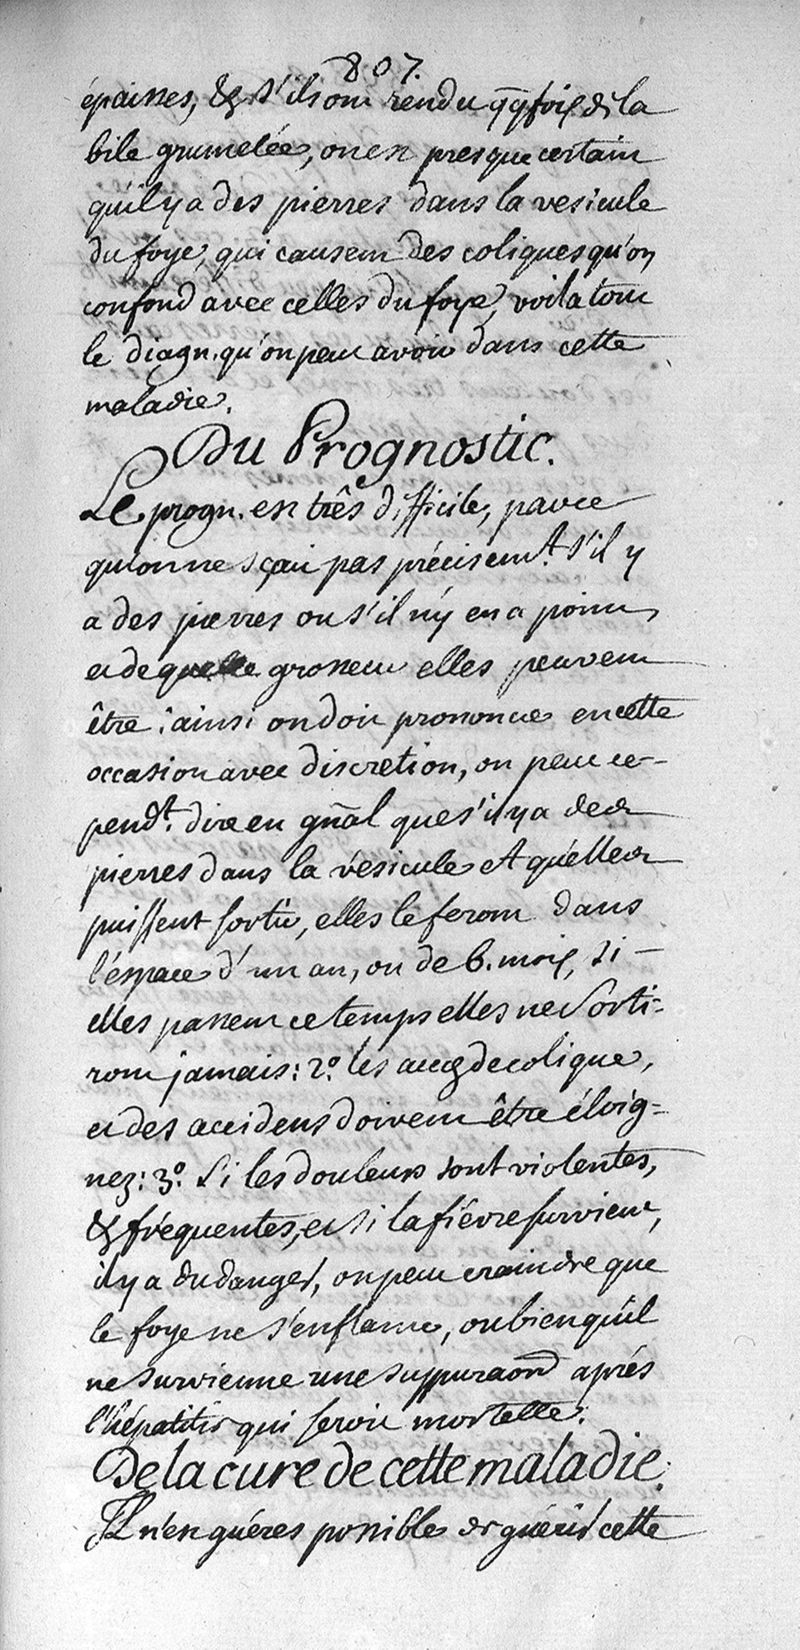 807.
épaisses, & s'ils ont rendu qqfois de la
bile grumelée, on est presque certain
qu'il y a des pierres dans la vesicule
du foye, qui causent des coliques qu'on
confond avec celles du foye, voila tout
le diagn. qu'on peut avoir dans cette
maladie.
Du Prognostic.
Le progn. est très difficile, parce
qu'on ne sçait pas précisemt. s'il y
a des pierres ou s'il n'y en a point,
et de quelle grosseur elles peuvent
être: ainsi on doit prononcer en cette
occasion avec discretion, on peut ce-
pendt. dire en gñal que s'il y a des
pierres dans la vésicule et qu'elles
puissent sortir, elles le feront dans
l'espace d'un an, ou de 6. mois, si
elles passent ce temps elles ne sorti=
ront jamais: 2.° les accès de colique,
et des accidens doivent être éloig=
nez: 3.° si les douleurs sont violentes,
& fréquentes, et si la fièvre survient,
il y a du danger, on peut craindre que
le foye ne s'enflame, ou bien qu'il
ne survienne une suppuraon après
l'hépatitis qui seroit mortelle.
De la cure de cette maladie.
Il n'est guéres possible de guérir cette